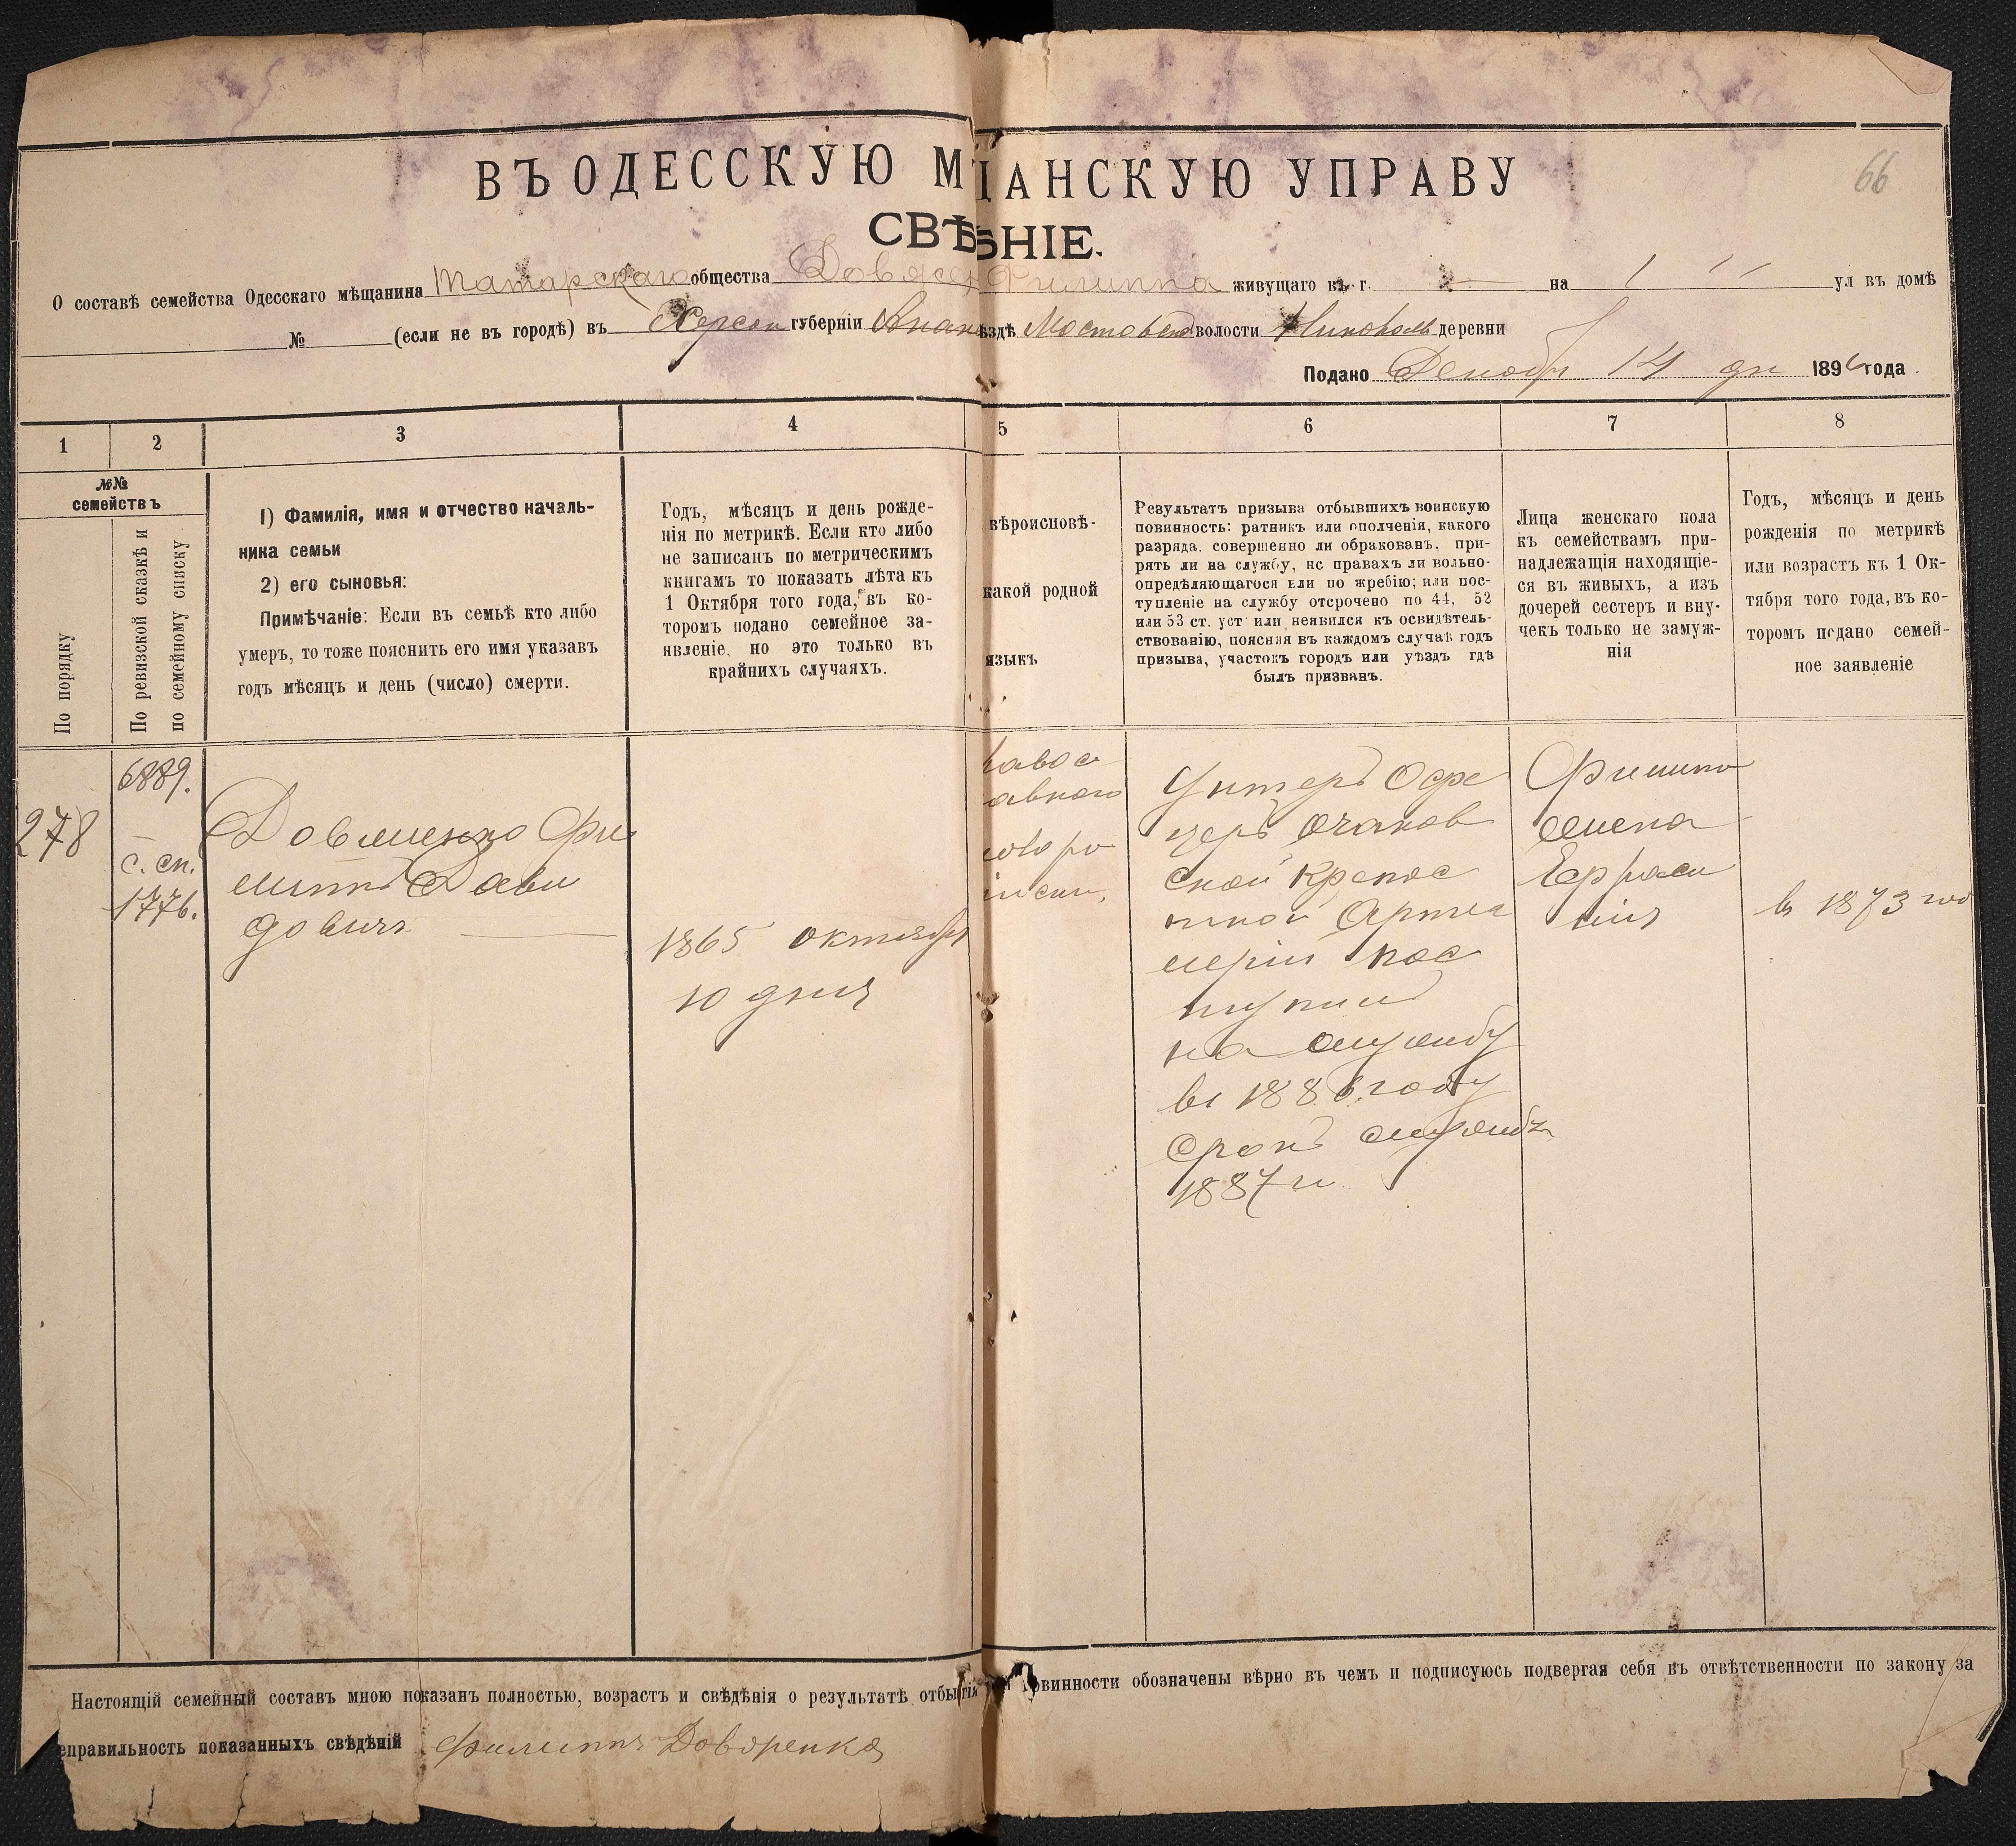 ВЪ ОДЕССКУЮ М ЩАНСКУЮ УПРАВУ
66
СВѢ ѢНІЕ.
О составѣ семейства Одесскаго мѣщанина Татарскаго общества Филиппа живущаго въ г. — на ул въ домѣ
№ (если не въ городѣ) въ Херсон губерніи Анан ѣздѣ Мостовской волости деревни
Подано Декабр 14 дн 1896 года
1 2 3 4 5 6 7 8
№№
семействъ
По порядку
По ревизской сказкѣ и
по семейному списку
1) Фамилія, имя и отчество началь-
ника семьи
2) его сыновья:
Примѣчаніе: Если въ семьѣ кто либо
умеръ, то тоже пояснить его имя указавъ
годъ мѣсяцъ и день (число) смерти.
Годъ, мѣсяцъ и день рожде-
нія по метрикѣ. Если кто либо
не записанъ по метрическимъ
книгамъ то показать лѣта къ
1 Октября того года, въ ко-
торомъ подано семейное за-
явленіе, но это только въ
крайнихъ случаяхъ.
вѣроисповѣ-
какой родной
языкъ
Результатъ призыва отбывшихъ воинскую
повинность: ратникъ или ополченія, какого
разряда, совершенно ли обракованъ, при-
рять ли на службу, нс правахъ ли вольно-
опредѣляющагося или по жребію; или пос-
тупленіе на службу отсрочено по 44, 52
или 53 ст. уст или неявился къ освидѣтель-
ствованію, поясняя въ каждомъ случаѣ годъ
призыва, участокъ городъ или уѣздъ гдѣ
былъ призванъ.
Лица женскаго пола
къ семействамъ при-
надлежащія находящіе-
ся въ живыхъ, а изъ
дочерей сестеръ и вну-
чекъ только не замуж-
нія
Годъ, мѣсяцъ и день
рожденія по метрикѣ
или возрастъ къ 1 Ок-
тября того года, въ ко-
торомъ подано семей-
ное заявленіе
278
6889.
с. сп.
1776.
Фи
липпъ Дави
довичъ
1865 октября
10 дня
равос
авнаго
Унтеръ Офе
церъ Очаков
ской Крепос
тной Артил
лерiи пос
тупилъ
на службу
въ 1886 году
Срокъ службы
1887 г
Филипа
жена
Ефраси
нія
въ 1873 го
Настоящій семейный составъ мною показанъ полностью, возрастъ и свѣдѣнія о результатѣ отбытія овинности обозначены вѣрно въ чемъ и подписуюсь подвергая себя къ отвѣтственности по закону за
еправильность показанныхъ свѣдѣній Филиппъ